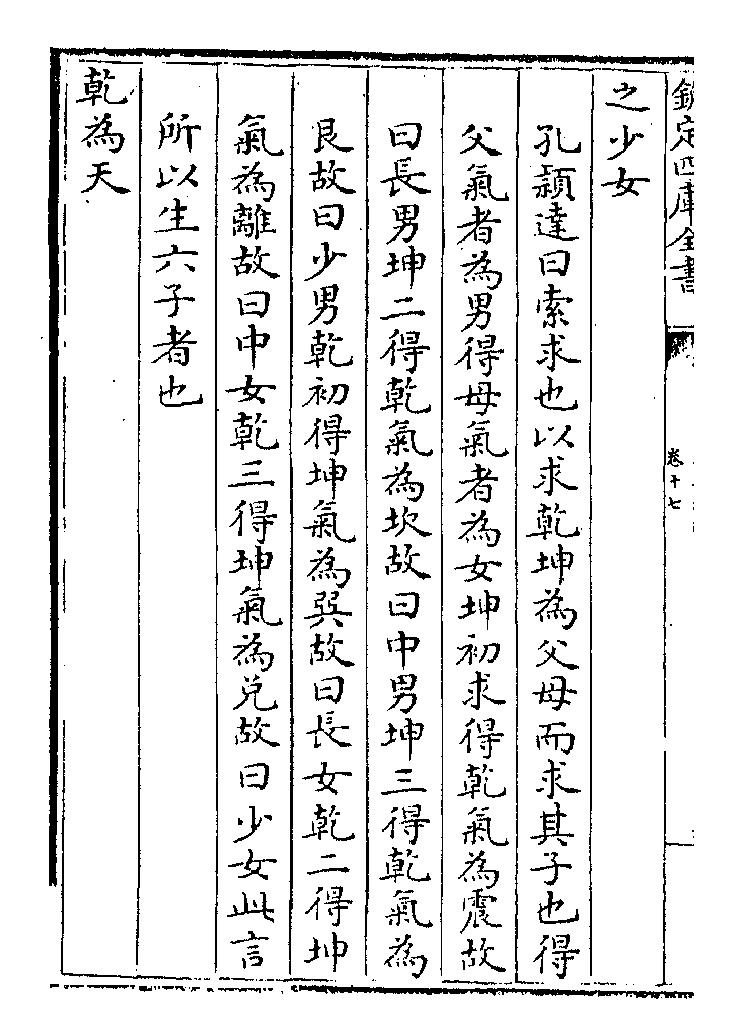 欽定四庫全書
卷十七
之少女
孔穎達曰索求也以求乾坤為父母而求其子也得
父氣者為男得母氣者為女坤初求得乾氣為震故
曰長男坤二得乾氣為坎故曰中男坤三得乾氣為
艮故曰少男乾初得坤氣為巽故曰長女乾二得坤
氣為離故曰中女乾三得坤氣為兑故曰少女此言
所以生六子者也
乾為天